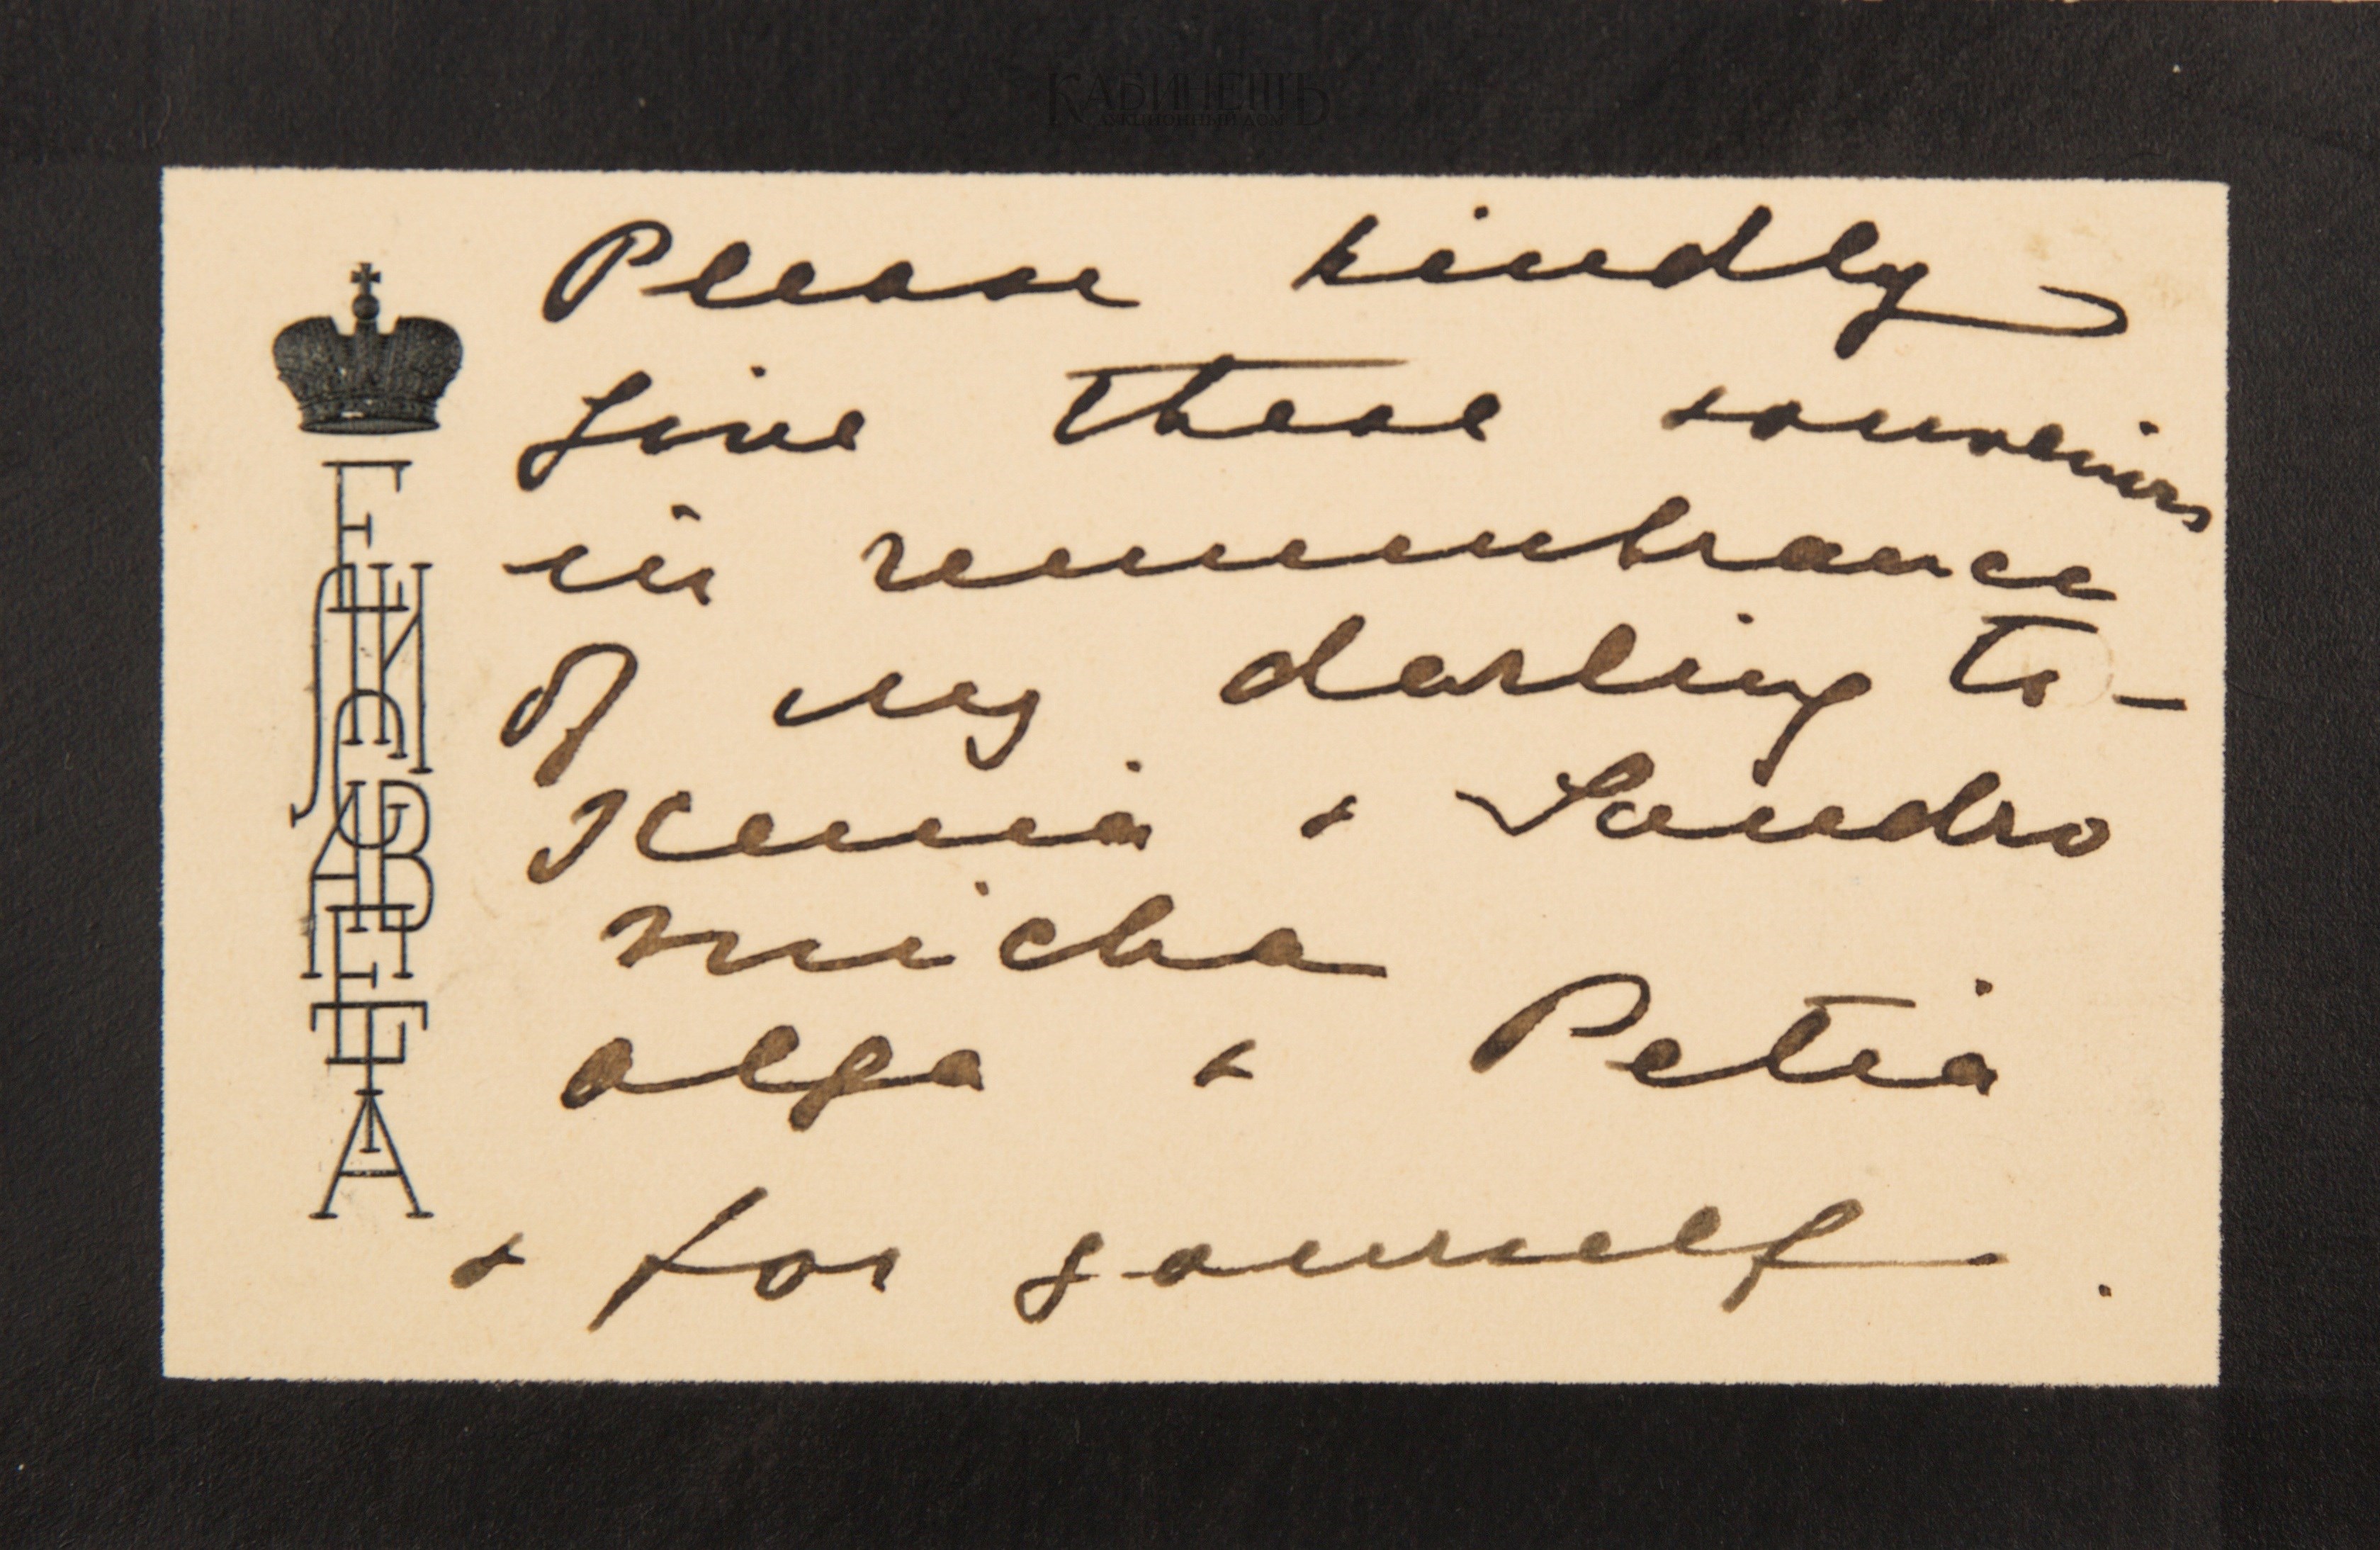 КАБИНЕТЪ
АУКЦИОННЫЙ ДОМ
ЕЛИСАВЕТА
Please kindly
give these souvenirs
in remembrance
of my darling to –
Xenia & Sandro
Micha
Olga & Petia
& for yourself.